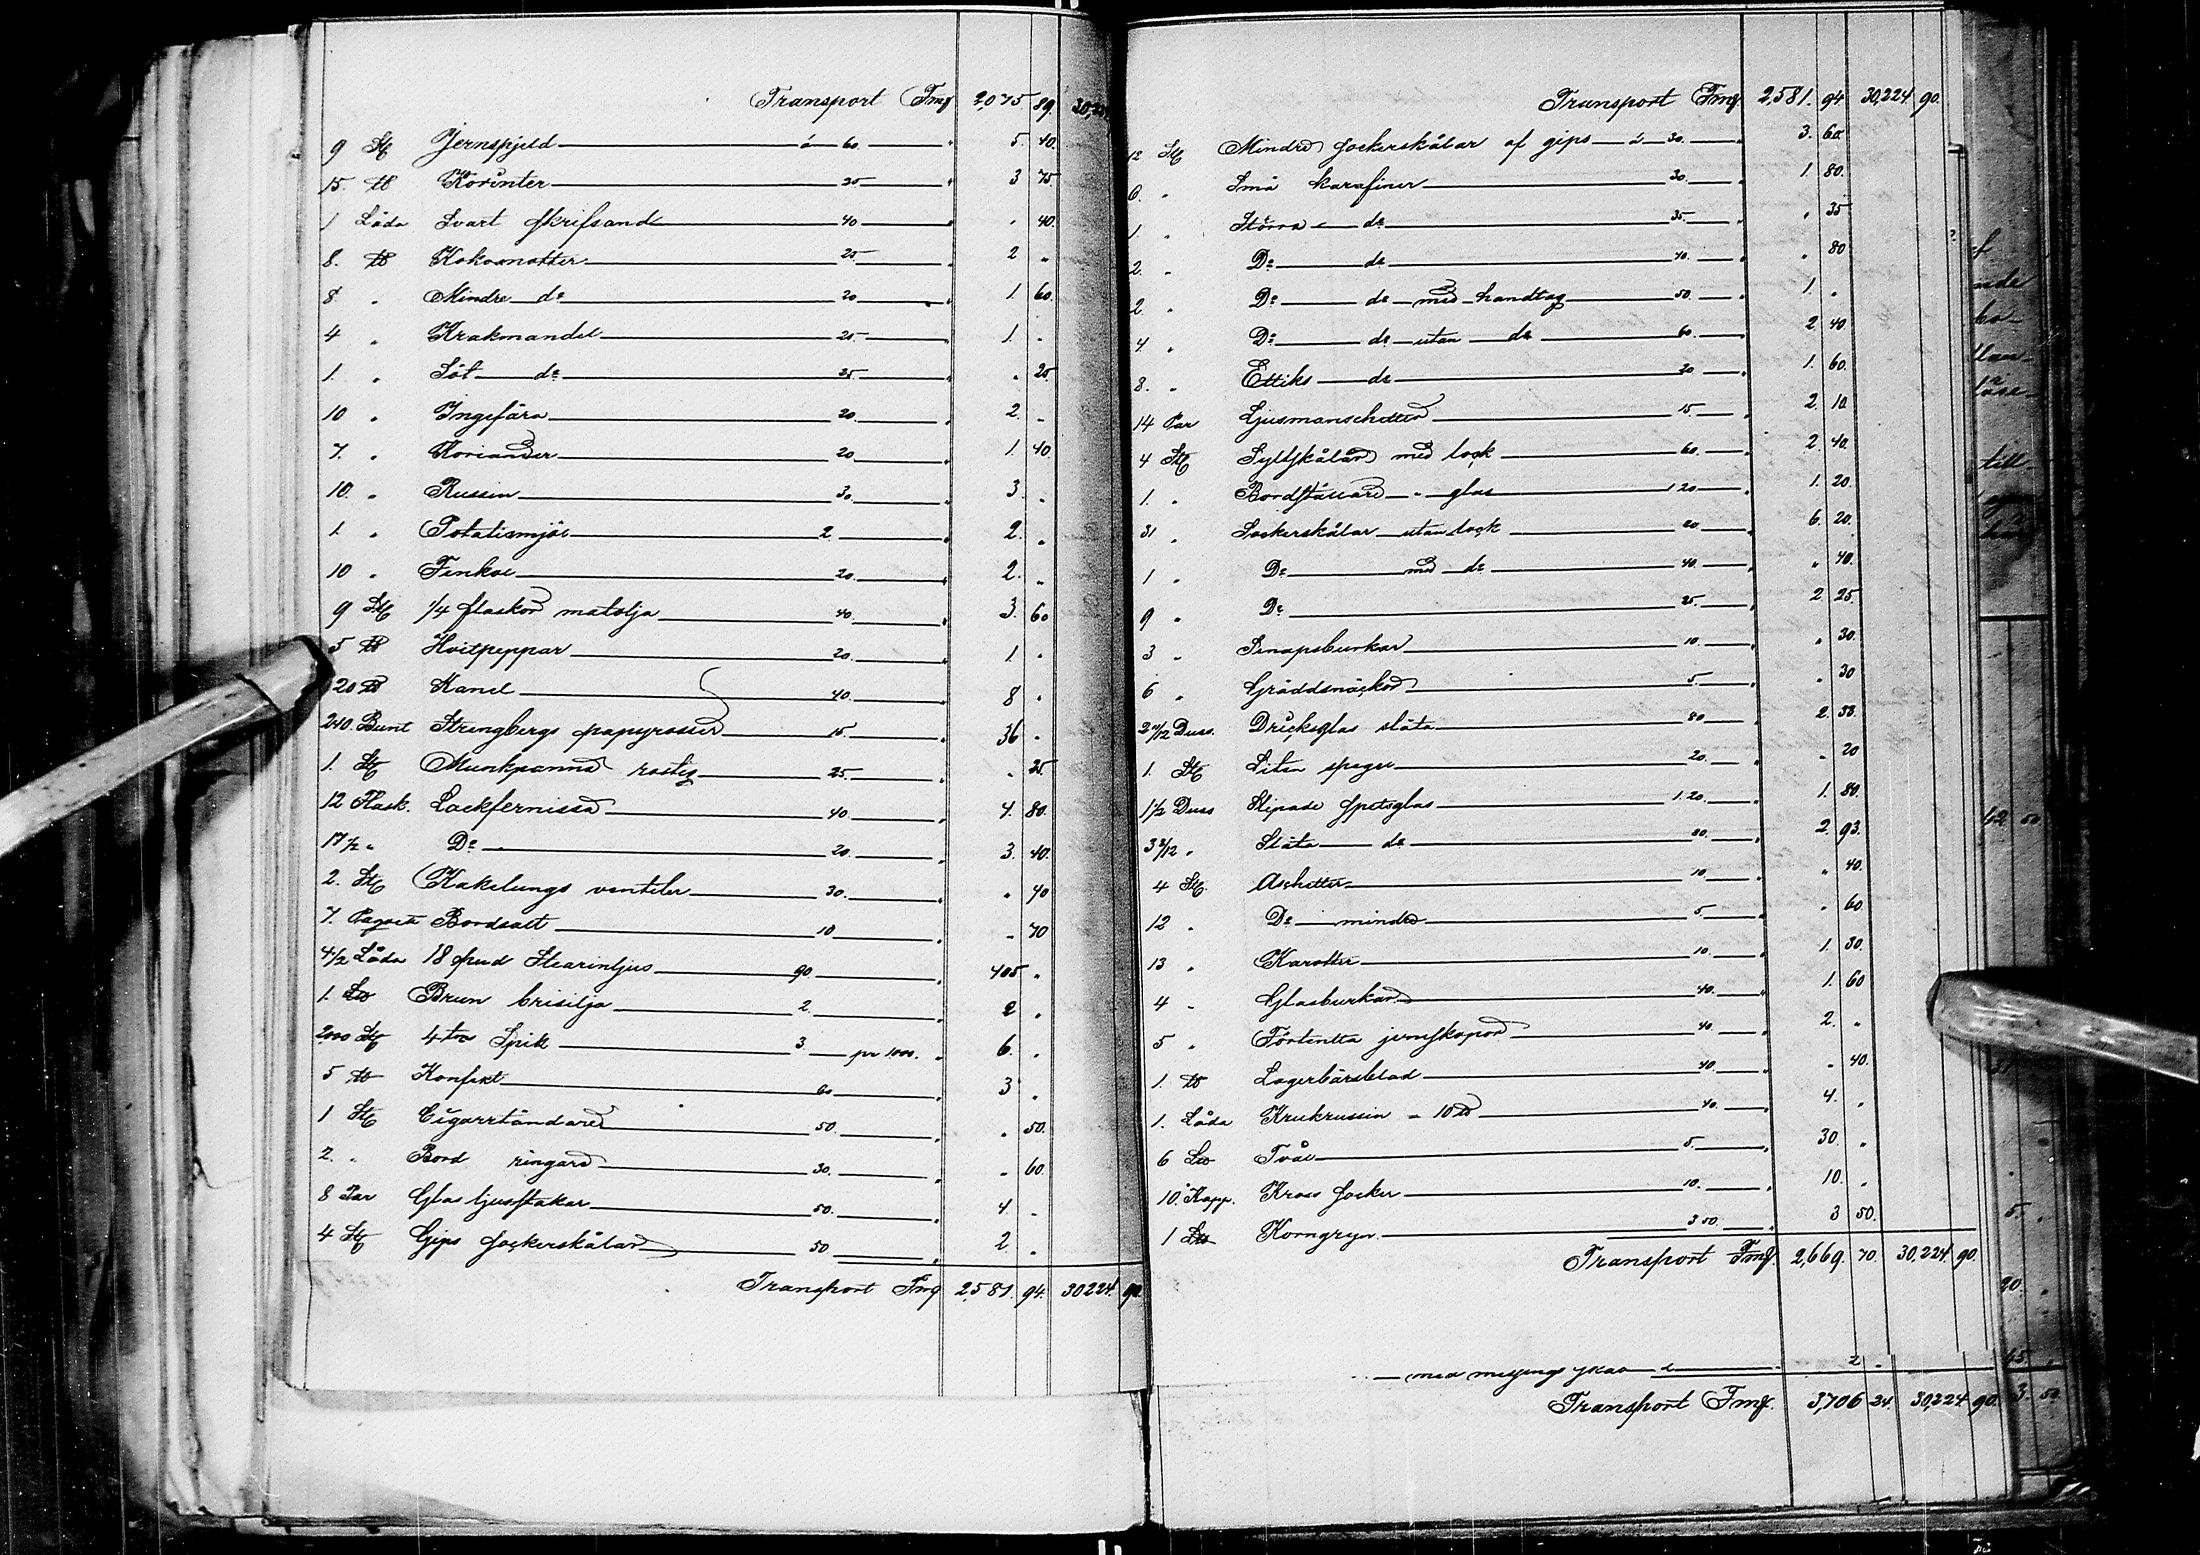 Transport Fmg 2,075 89. 30,22
9 St Jernspjeld à 60. " 5. 40.
15. ℔ Korinter 25 " 3 75
1 Låda Svart skrifsand 40 " " 40.
8. ℔ Kokosnötter 25 " 2 "
8 " Mindre do 20 " 1. 60.
4 " Krakmandel 25 " 1. "
1. " Söt do 25 " " 25.
10 " Ingefära 20 " 2. "
7. " Koriander 20 " 1. 40
10. " Russin 30 " 3. "
1 " Potatismjöl 2 " 2. "
10 " Fenkol 20. " 2. "
9 St 1/4 flaskor matolja 40 " 3. 60
5 ℔ Hvitpeppar 20. " 1. "
20 ℔ Kanel 40. " 8 "
240. Bunt Strengbergs papyrosser 15. " 36 "
1. St Munkpanna rostig 25. " " 25.
12 Flask. Lackfernissa 40. " 4. 80.
17 1/2 " Do 20. " 3. 40.
2. St Kakelungs ventiler 30. " " 40
7. Paquet Bordsalt 10 " " 70
4 1/2 Låda 18 pud Stearinljus 90. " 405 "
1. Lb Brun brisilja 2. " 2 "
2000 St 4 tm Spik 3 pr 1000. " 6. "
5 ℔ Konfekt 60 " 3 "
1 St Cigarrtändare 50. " " 50.
2. " Bord ringare 30. " " 60.
8 Par Glas ljusstakar 50. " 4. "
4 St Gips sockerskålar 50 " 2 "
Transport Fmg 2,581. 94. 30224. 90.
Transport Fmg 2,581. 94 30,224 90.
12 St Mindre sockerskålar af gips à 30. " 3. 60.
6. " Små karafiner 30 " 1. 80.
1. " Större do 35. " " 35
2. " Do do 40. " " 80
2 " Do do med handtag 50. " 1. "
4 " Do do utan do 60 " 2. 40
8. " Ettiks do 20 " 1. 60.
14 Par Ljusmanschetter 15. " 2. 10.
4 St Syltskålar med lock 60. " 2. 40.
1. " Bordstässare " glas 1 20 " 1. 20.
31 " Sockerskålar utan lock 20 " 6. 20.
1 " Do med do 40. " " 40.
9 " Do 25. " 2. 25.
3 " Senapsburkar 10. " " 30.
6 " Gräddsnäckor 5. " " 30
2 11/12 Duss. Dricksglas släta 80 " 2. 33.
1. St Liten spegel 20. " " 20
1 1/2 Duss Slipade spetsglas 1. 20. " 1. 80.
3 8/12 " Släta do 80 " 2. 93.
4 St. Aschetter 10. " " 40.
12 " Do mindre 5 " " 60
13 " Karotter 10. " 1. 30.
4 " Glasburkar 40. " 1. 60
5 " Förtenta jernskopor 40. " 2. "
1. ℔ Lagerbärsblad 40 " " 40.
1. Låda Krukrussin = 10 ℔ 40. " 4. "
6 Lb Tvål 5. " 30. "
10. Kapp. Kross socker 10. " 10. "
1 Lb Korngryn 3 50. " 3 50.
Transport Fmg. 2,669. 70. 30,224. 90.
med messings 2 "
Transport Fmg. 3,706 24. 30,224 90. 3. 50